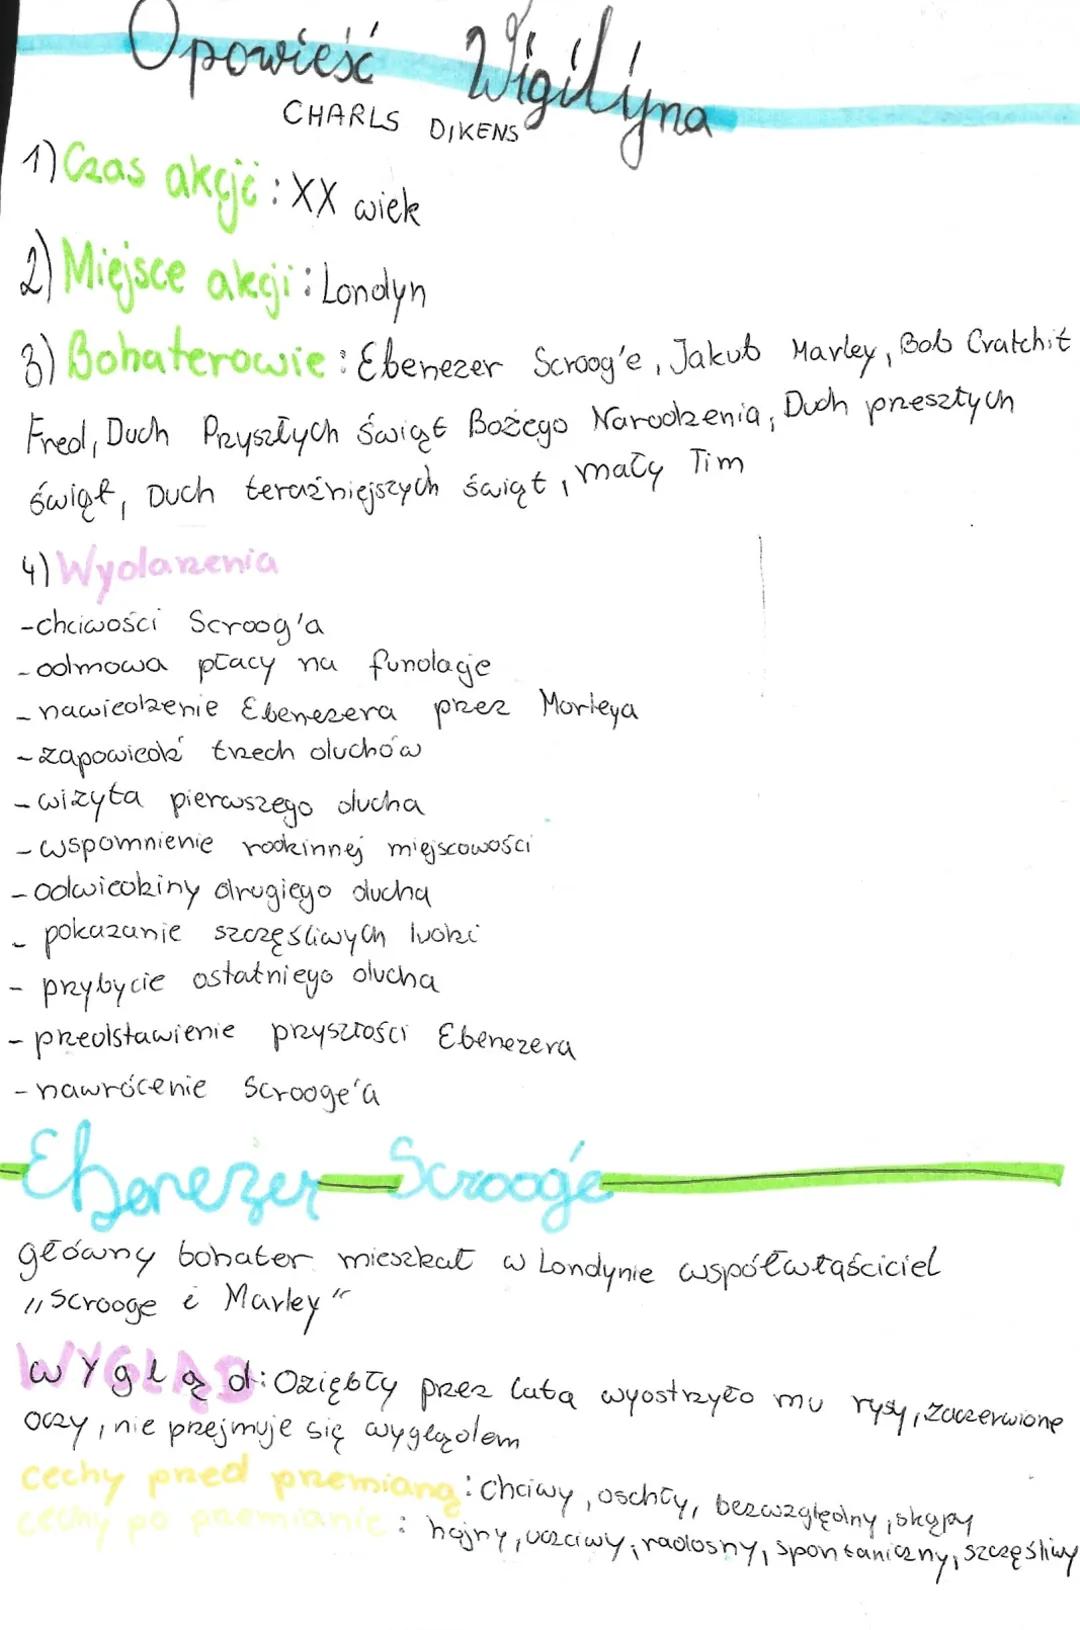 Opowieść Wigilijna
CHARLS DIKENS
1) Czas akcji : XX wiek
2) Miejsce akcji : Londyn
3) Bohaterowie : Ebenezer Scroog'e, Jakub Marley, Bob Cratchit
Fred, Duch Przyszłych Świąt Bożego Narodzenia, Duch przeszłych
świąt, Duch teraźniejszych świąt, mały Tim
4) Wydarzenia
-chciwości Scroog'a
-odmowa płacy na fundacje
-nawiedzenie Ebenezera przez Marleya
-zapowiedź trzech duchów
-wizyta pierwszego ducha
-wspomnienie rodzinnej miejscowości
-odwiedziny drugiego ducha
- pokazanie szczęśliwych ludzi
- przybycie ostatniego ducha
- przedstawienie przyszłości Ebenezera
- nawrócenie Scrooge'a
Ebenezer Scrooge
główny bohater mieszkał w Londynie współwłaściciel
"Scrooge i Marley"
WYGLĄD: Oziębły przez lata wyostrzyło mu rysy, zaczerwione
oczy, nie przejmuje się wyglądem
cechy przed przemianą : chciwy, oschły, bezwzględny, skąpy
cechy po przemianie : hojny, uczciwy, radosny, spontaniczny, szczęśliwy